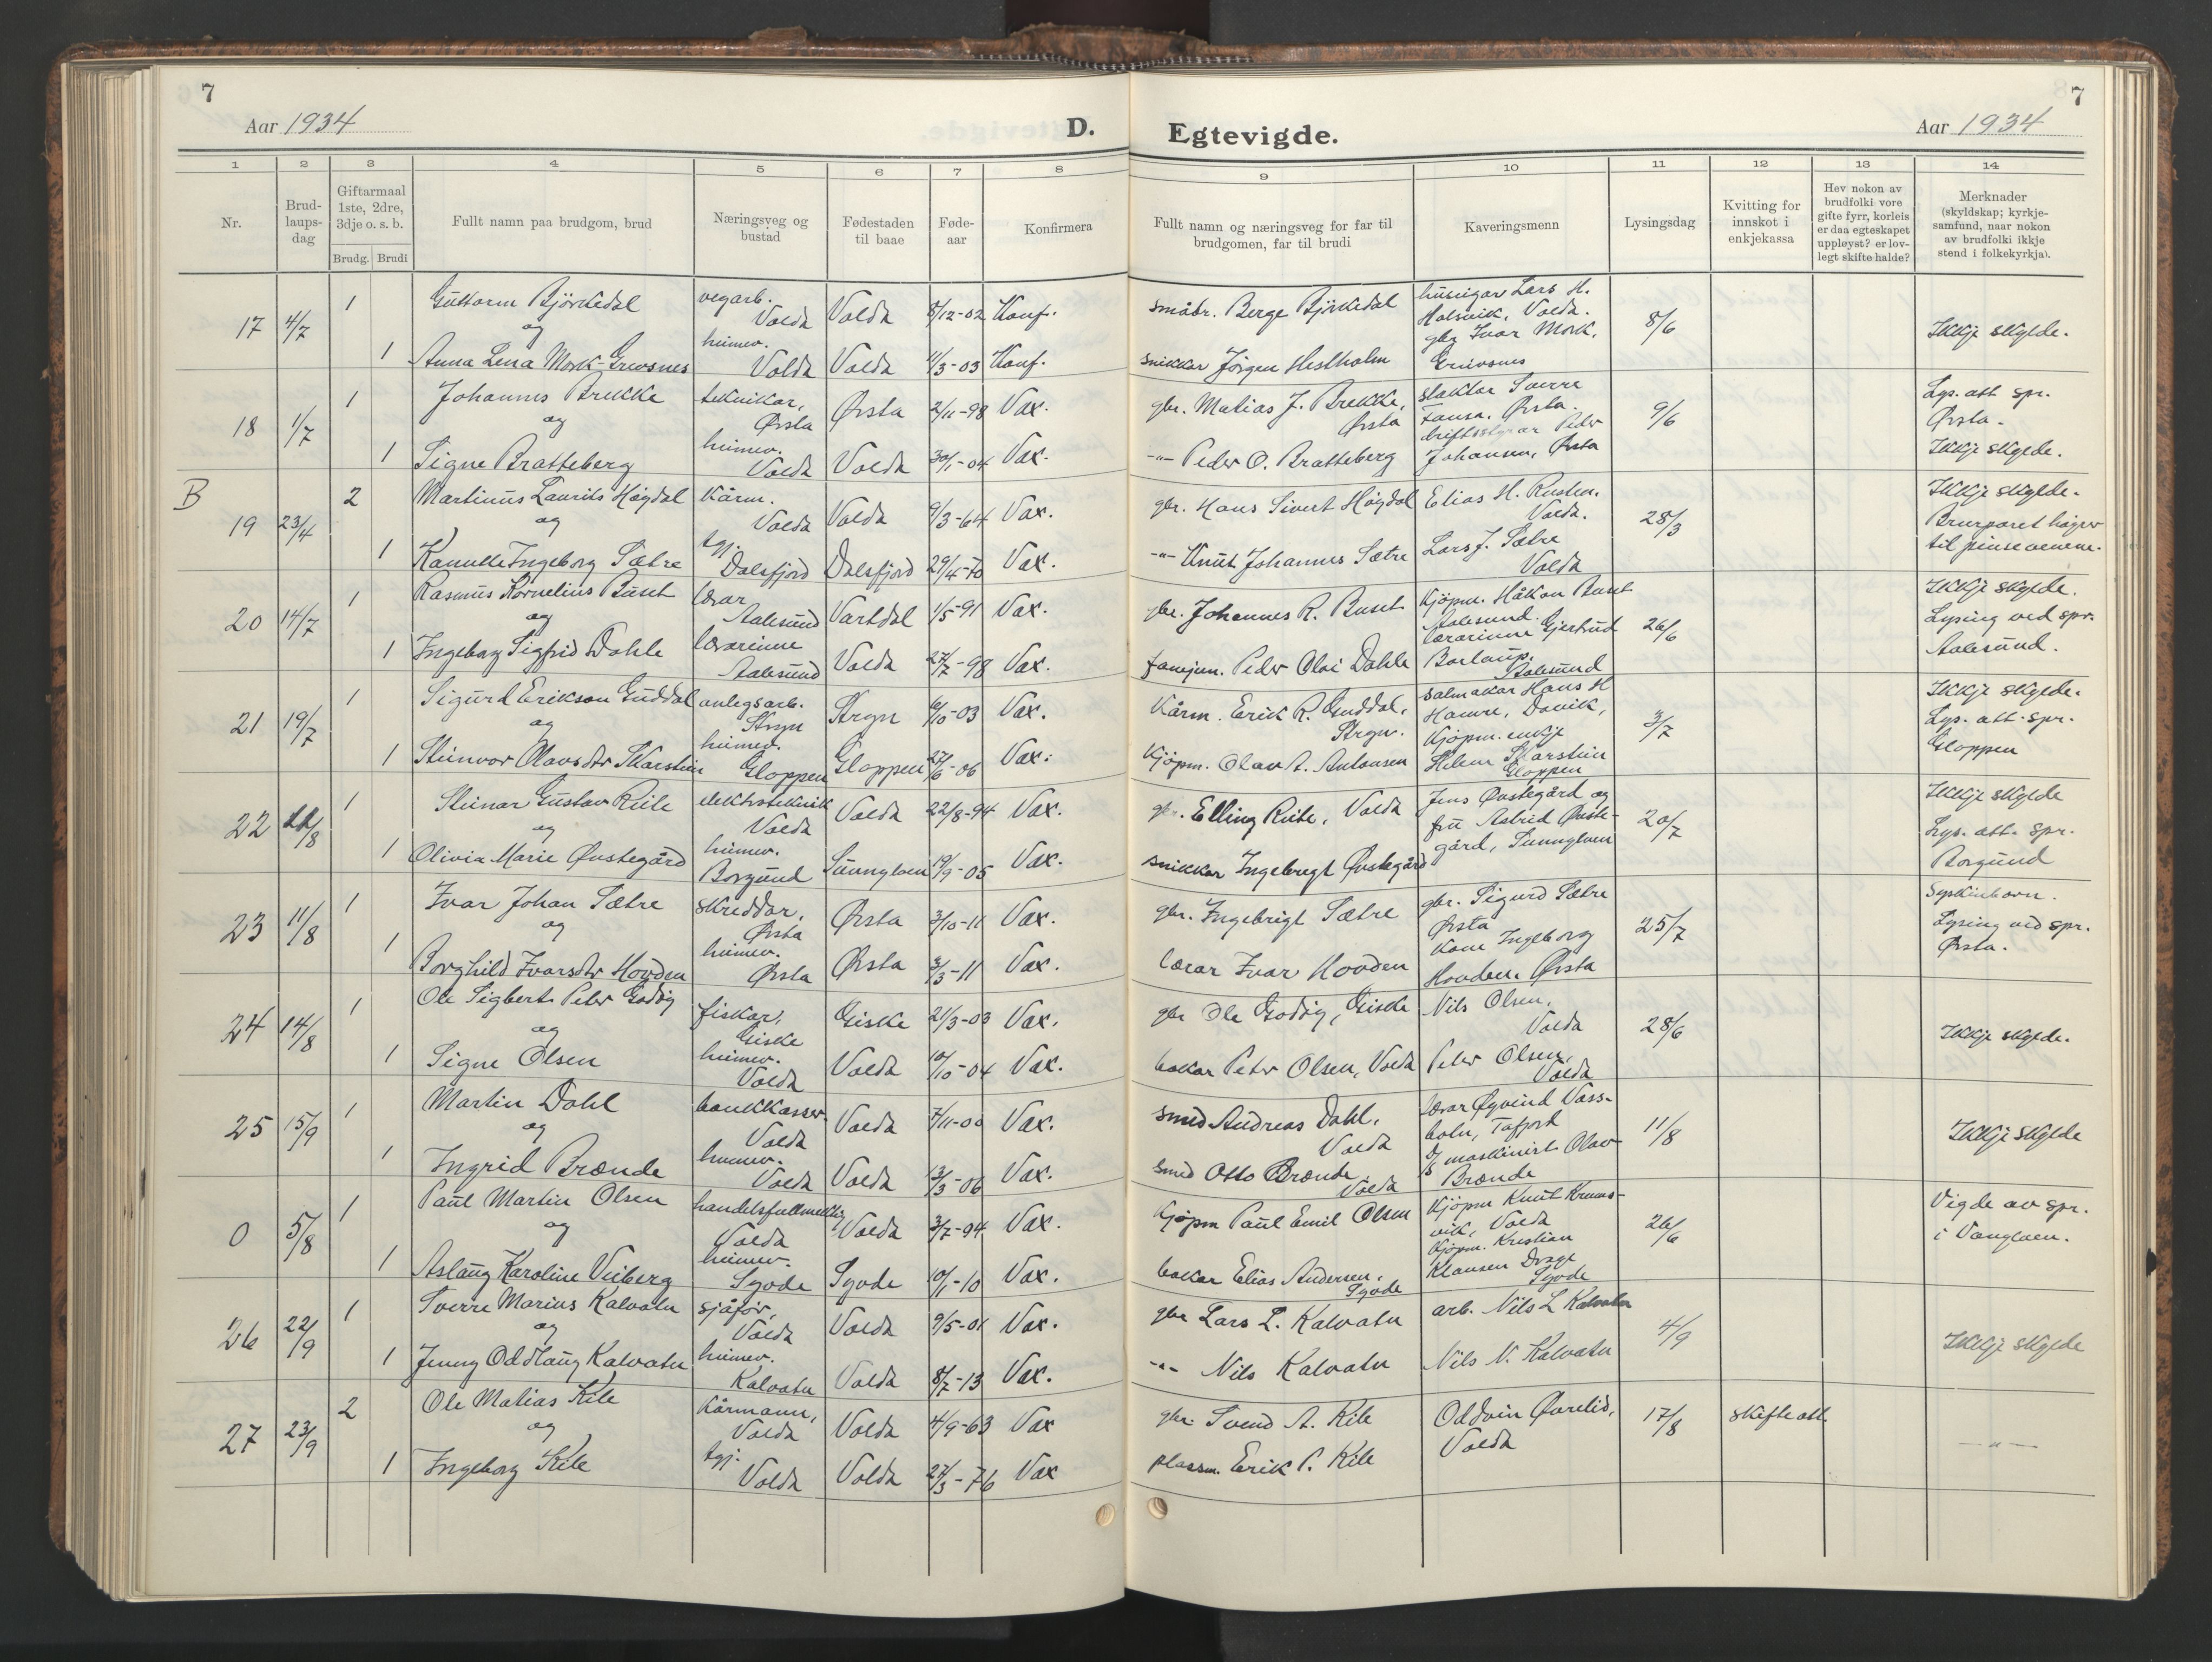 7
Aar 1934
D.
1 2 3 4 5 6 7 8
Nr.
Brud-
laups-
dag
Giftarmaal
1ste, 2dre,
3dje o. s. b.
Brudg. Brudi
Fullt namn paa brudgom, brud
Næringsveg og
bustad
Fødestaden
til baae
Føde-
aar
Konfirmera
17 4/7 1 Guttorm Bjørkedal vegarb. Volda Volda 8/12-02 Konf.
og
1 Anna Lena Mork-Grevsnes heimev. Volda Volda 11/3-03 Konf.
18 1/7 1 Johannes Brekke teknikar, Ørsta Ørsta 2/11-98 Vax.
og
1 Signe Bratteberg heimev. Volda Volda 30/1-04 Vax.
B
19 23/4 2 Martinus Laurits Høgdal kårm. Volda Volda 9/3-64 Vax.
og
1 Kamille Ingeborg Sætre tgj. Dalsfjord Dalsfjord 29/4-70 Vax.
20 14/7 1 Rasmus Kornelius Buset lærar Aalesund Vartdal 1/5-91 Vax.
og
1 Ingeborg Sigfrid Dahle lærarinne Aalesund Volda 27/7-98 Vax.
21 19/7 1 Sigurd Erikson Guddal anlegsarb. Stryn Stryn 6/10-03 Vax.
og
1 Steinvor Olavsdtr Skarstein heimev. Gloppen Gloppen 27/6-06 Vax.
22 11/8 1 Steinar Gustav Reite elektroteknik Volda Volda 22/8-94 Vax.
og
1 Olivia Marie Øvstegård heimev. Borgund Sunnylven 19/9-05 Vax.
23 11/8 1 Ivar Johan Sætre skreddar, Ørsta Ørsta 3/10-11 Vax.
og
1 Borghild Ivarsdtr Hovden heimev. Ørsta Ørsta 3/3-11 Vax.
24 14/8 1 Ole Sigbert Peter Godøy fiskar, Giske Giske 21/3-03 Vax.
og
1 Signe Olsen heimev. Volda Volda 10/10-04 Vax.
25 15/9 1 Martin Dahl bankkasser Volda Volda 7/11-00 Vax.
og
1 Ingrid Brænde heimev. Volda Volda 13/3-06 Vax.
0 5/8 1 Paul Martin Olsen handelsfullmektig Volda Volda 3/7-94 Vax.
og
1 Aslaug Karoline Veiberg heimev. Syvde Syvde 10/1-10 Vax.
26 22/9 1 Sverre Marius Kalvatn sjåfør, Volda Volda 9/5-01 Vax.
og
1 Jenny Oddlaug Kalvatn heimev. Kalvatn Volda 8/7-13 Vax.
27 23/9 2 Ole Matias Kile kårmann, Volda Volda 4/9-63 Vax
og
1 Ingeborg Kile tgj. Volda Volda 27/3-76 Vax
7
Egtevigde.
Aar 1934
9 10 11 12 13 14
Fullt namn og næringsveg for far til
brudgomen, far til brudi
Kaveringsmenn
Lysingsdag
Kvitting for
innskot i
enkjekassa
Hev nokon av
brudfolki vore
gifte fyrr, korleis
er daa egteskapet
uppløyst? er lov-
legt skifte halde?
Merknader
(skyldskap; kyrkje-
samfund, naar nokon
av brudfolki ikkje
stend i folkekyrkja).
småbr. Berge Bjørkedal
snikkar Jørgen Hestholm
huseigar Lars H.
Halsvik, Volda.
gbr Ivar Mork,
Greivsnes
8/6
Ikkje skylde.
gbr. Matias J. Brekke,
Ørsta
-"- Peder O. Bratteberg
slaktar Sverre
Fausa. Ørsta.
driftsstyrar Peder
Johansen, Ørsta
9/6
Lys. att spr.
Ørsta.
Ikkje skylde.
gbr. Hans Sivert Høgdal
-"- Knut Johannes Sætre
Elias H. Rusten.
Volda.
Lars J. Sætre
Volda
28/3
Ikkje skylde.
Brurparet høyrer
til pinsevenene.
gbr. Johannes R. Buset
Peder Olai Dahle
Kjøpm. Håkon Buset
Aalesund.
lærarinne Gjertrud
Borlaup.
Aalesund
26/6
Ikkje skylde.
Lysing ved spr.
Aalesund.
Kårm. Erik R. Guddal,
Stryn.
Kjøpm. Olav A. Antonsen
salmakar Hans H
Hamre, Davik,
Kjøpm. enkje
Helene Skarstein
Gloppen
3/7
Ikkje skylde.
Lys. att. spr.
Gloppen
gbr. Elling Reite, Volda
snikkar Ingebregt Øvstegård
Jens Øvstegård og
fru Astrid Øvste-
gård, Sunnylven
20/7
Ikkje skylde
Lys. att. spr.
Borgund
gbr. Ingebrigt Sætre
lærar Ivar Hovden
gbr. Sigurd Sætre
Ørsta
Kone Ingeborg
Hovden. Ørsta
25/7
Syskinborn.
Lysing ved spr.
Ørsta.
gbr Ole Godøy, Giske
bakar Peter Olsen, Volda
Nils Olsen,
Volda
Peter Olsen,
Volda
28/6
Ikkje skylde.
smed Andreas Dahl,
Volda
smed Otto Brænde
Volda
lærar Øyvind Vass-
botn, Tafjord
maskinist Olav
Brænde
11/8
Ikkje skylde
Kjøpm Paul Emil Olsen
bakar Elias Andersen,
Syvde
Kjøpm Knut Krums-
vik, Volda
Kjøpm. Kristian
Klausen Drage
Syvde
26/6
Vigde av spr.
i Vanylven.
gbr Lars L. Kalvatn
-"- Nils Kalvatn
arb. Nils L Kalvatn
Nils N. Kalvatn
4/9
Ikkje skylde
gbr. Svend A. Kile
plassm. Erik P. Kile
Oddvin Øvrelid,
Volda
17/8
Skifteatt.
-"-